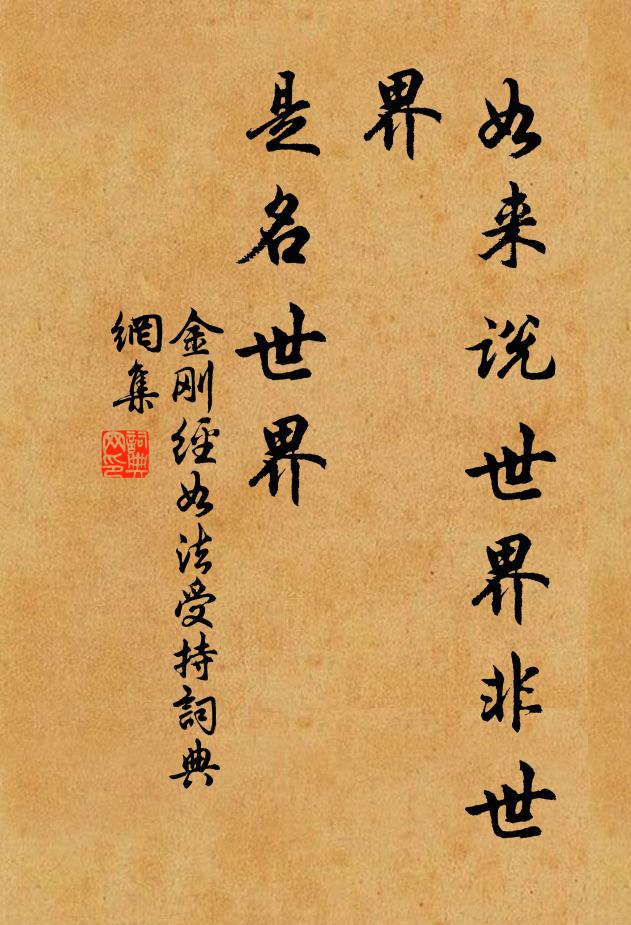 如来说世界非世
界
是名世界
金刚經如法受持詞典
網集
詞典
网印